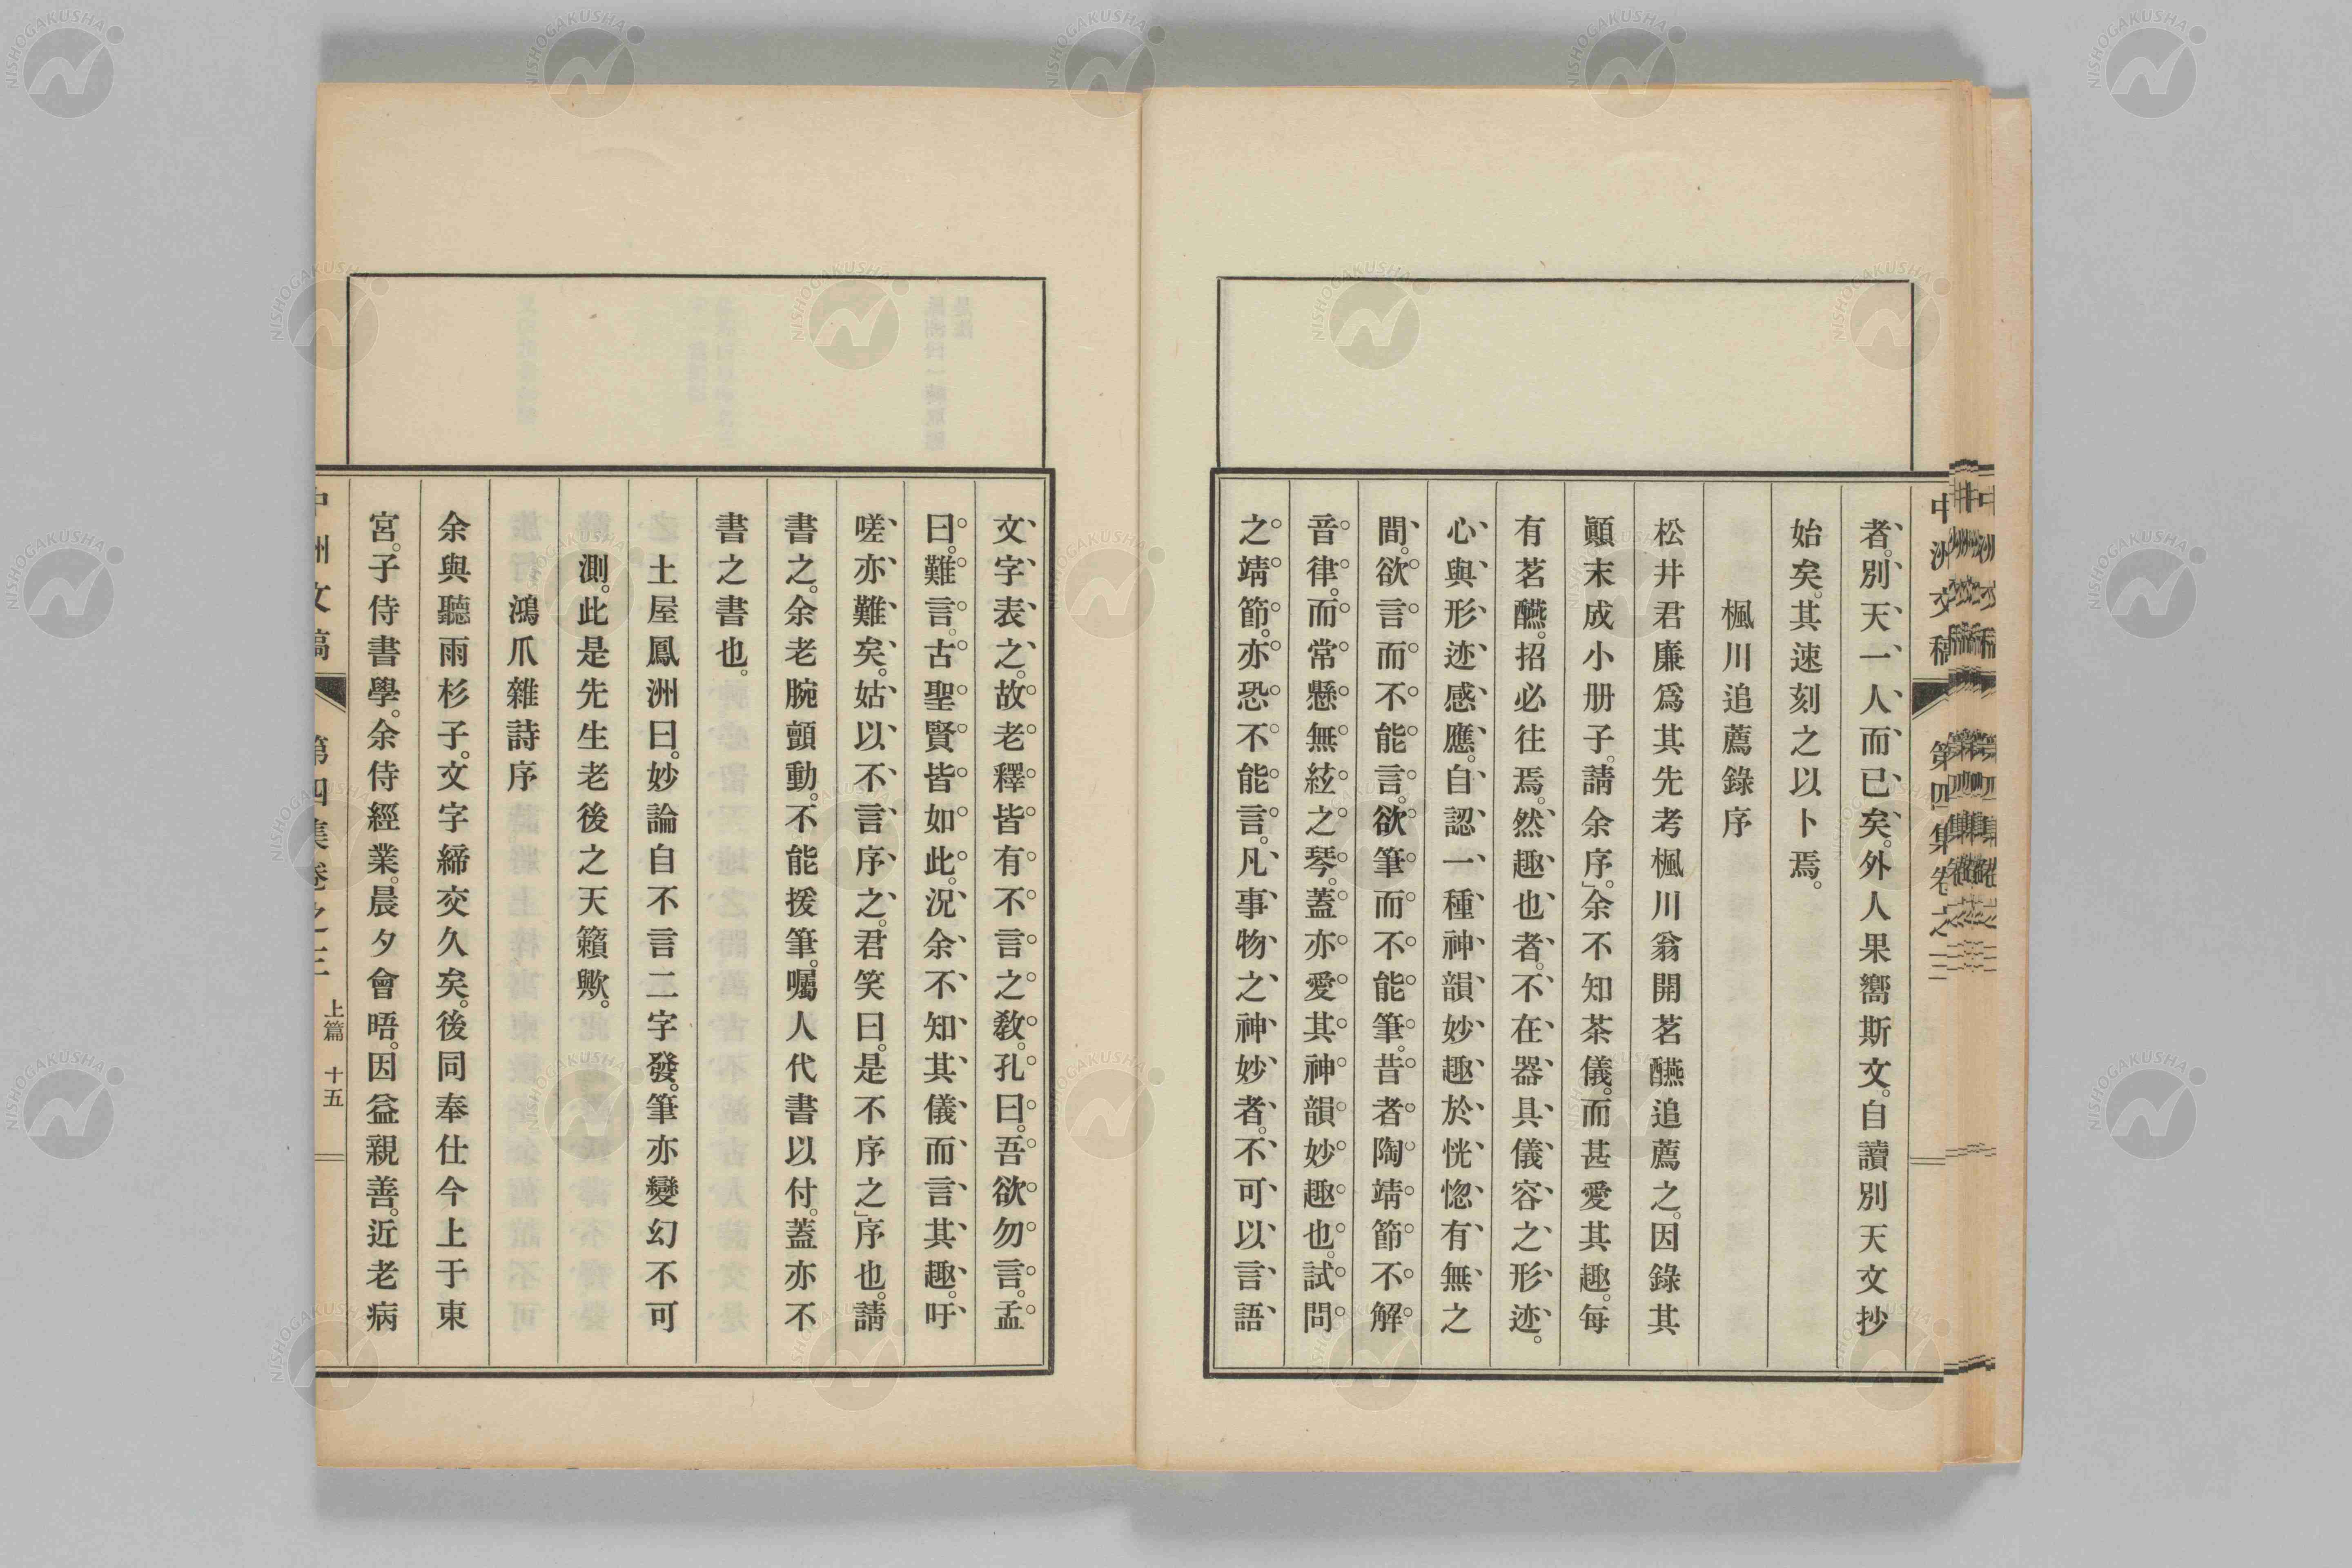 者。別天一人而已矣。外人果嚮斯文。自讀別天文抄
始矣。其速刻之以卜焉。
楓川追薦錄序
松井君廉爲其先考楓川翁開茗醼追薦之。因錄其
顚末成小册子。請余序。」余不知茶儀。而甚愛其趣。每
有茗醼。招必往焉。然趣也者。不在器具儀容之形迹。
心與形迹感應。自認一種神韻妙趣於恍惚有無之
間。欲言而不能言。欲筆而不能筆。昔者陶靖節不解
音律。而常懸無絃之琴。蓋亦愛其神韻妙趣也。試問
之靖節。亦恐不能言。凡事物之神妙者。不可以言語
文字表之。故老釋皆有不言之敎。孔曰。吾欲勿言。孟
曰。難言。古聖賢皆如此。況余不知其儀而言其趣。吁
嗟亦難矣。姑以不言序之。君笑曰。是不序之」序也。請
書之。余老腕顫動。不能援筆。囑人代書以付。蓋亦不
書之書也。
土屋鳳洲曰。妙論自不言二字發。筆亦變幻不可
測。此是先生老後之天籟歟。
鴻爪雜詩序
余與聽雨杉子。文字締交久矣。後同奉仕今上于東
宮。子侍書學。余侍經業。晨夕會晤。因益親善。近老病
中洲文稿 第四集卷之三 上篇 十五
NISHOGAKUSHA